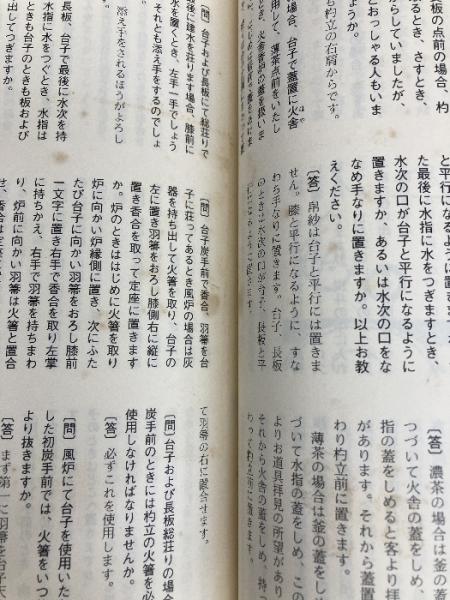 板の点前の場合、杓
るとき、さすとき、
らしていましたが、
とおっしゃる人もいま
ょうか。
も杓立の右肩からです。
場合、台子で蓋置に火舎
して、薄茶点前をいたし
とき、火舎香炉の蓋を扱いま
と平行になるように置きます
た最後に水指に水をつぎますとき、
水次の口が台子と平行になるように
置きますか、あるいは水次の口をな
なめ手なりに置きますか。以上お教
えください。
〔答〕 帛紗は台子と平行には置きま
せん。膝と平行になるように、すな
わち手なりに置きます。台子、長板
のときは水次の口が台子、長板と平
行になるように置きます。
〔答〕 濃茶の場合は釜の蓋を
つづいて火舎の蓋をしめ、
指の蓋をしめると客より拝
があります。それから蓋置
わり杓立前に置きます。
薄茶の場合は釜の蓋をし
づいて水指の蓋をしめ、この
よりお道具拝見の所望があり
それから火舎の蓋をしめ、持つ
わって杓立前に置きます。
〔問〕 台子および長板にて総荘りで
後に建水を荘ります場合、膝前に
水を置くとき、左手一手でしょう
それとも添え手をするのでしょ
添え手をされるほうがよろし
長板、台子で最後に水次を持
指に水をつぐとき、水指は
とも台子のときも板および
出してつぎますか。
〔問〕 台子炭手前で香合、羽箒を台
子に荘ってあるとき風炉の場合は灰
器を持ち出して火箸を取り、台子の
左に置き羽箒をおろし膝側右に縦に
置き香合を取って定座に置きます
か。炉のときははじめに火箸を取り
炉に向かい炉縁側に置き、次にふた
たび台子に向かい羽箒をおろし膝前
一文字に置き右手で香合を取り左掌
に持ちかえ、右手で羽箒を持ちまわ
り、炉前に向かい羽箒は火箸と置合
て羽箒の右に置合せます。
〔問〕 台子および長板総荘りの場合
炭手前のときには杓立の火箸を必
使用しなければなりませんか。
〔答〕 必ずこれを使用します。
〔問〕 風炉にて台子を使用いた
した初炭手前では、火箸をいつ
より抜きますか。
〔答〕 まず第一に羽箒を台子天